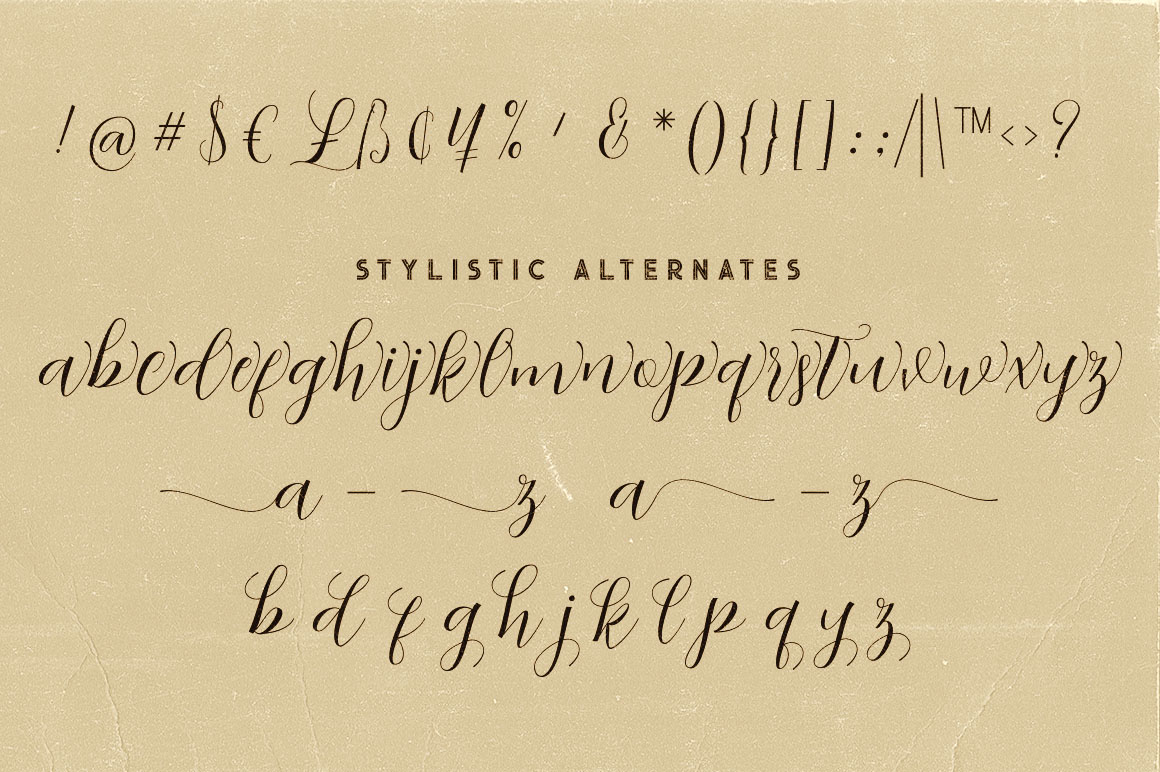 ! @ # $ € £ ß ¢ ¥ % ' & * ( ) { } [ ] : ; / | \ ™ < > ?
STYLISTIC ALTERNATES
a b c d e f g h i j k l m n o p q r s t u v w x y z
a – z a – z
b d f g h j k l p q y z